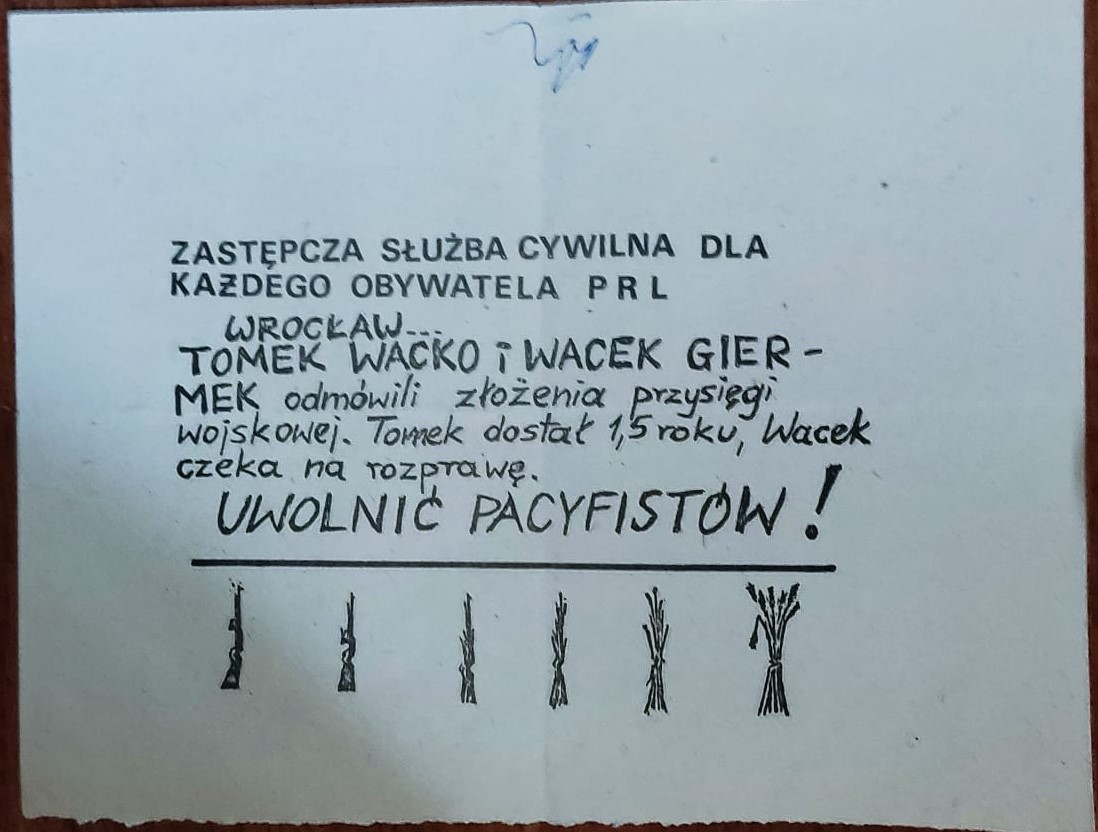 ZASTĘPCZA SŁUŻBA CYWILNA DLA
KAŻDEGO OBYWATELA P R L
WROCŁAW...
TOMEK WACKO i WACEK GIER-
MEK odmówili złożenia przysięgi
wojskowej. Tomek dostał 1,5 roku, Wacek
czeka na rozprawę.
UWOLNIĆ PACYFISTÓW!